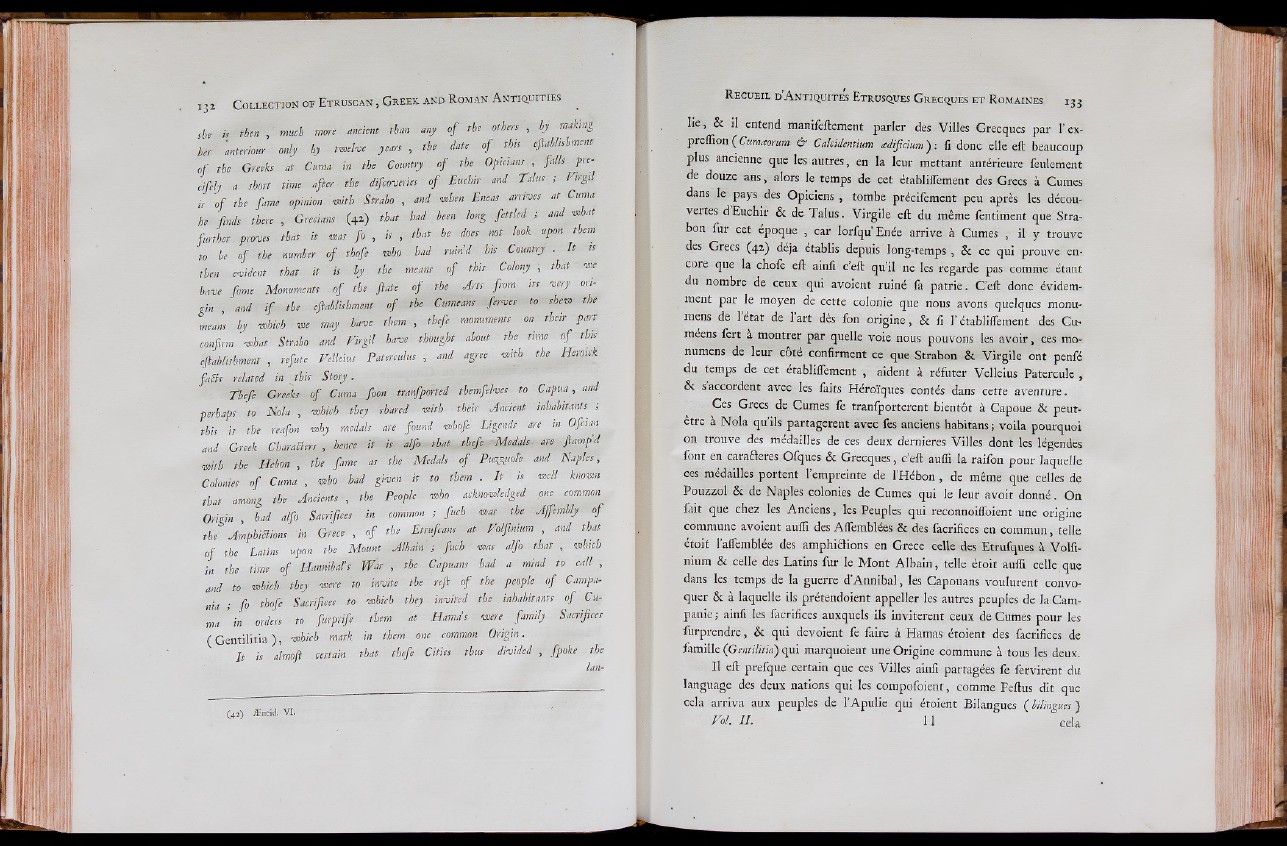 132 COLLECTION OF ETRUSCAN, GREEK AND ROMAN ANTIQUITIES
she is then , much more ancient than any of the others , by making
her anteriour only by twelve years , the date of this eſtablishment
of the Greeks at Cuma in the Country of the Opicians , falls pre-
ciſely a short time after the diſcoveries of Euchir and Talus ; Virgil
is of the ſame opinion with Strabo , and when Eneas arrives at Cuma
he finds there , Grecians (42) that had been long ſettled ; and what
further proves that it was ſo , is , that he does not look upon them
to be of the number of thoſe who had ruin'd his Country . It is
then evident that it is by the means of this Colony , that we
have ſome Monuments of the ſtate of the Arts from its very ori-
gin , and if the eſtablishment of the Cumeans ſerves to shew the
means by which we may have them , theſe monuments on their part
confirm what Strabo and Virgil have thought about the time of this
eſtablishment , refute Velleius Paterculus , and agree with the Heroick
facts related in this Story .
Theſe Greeks of Cuma ſoon tranſported themſelves to Capua , and
perhaps to Nola , which they shared with their Ancient inhabitants ;
this is the reaſon why medals are found whoſe Ligends are in Oſcian
and Greek Characters , hence it is alſo that theſe Medals are ſtamp'd
with the Hebon , the ſame as the Medals of Puzzuole and Naples ,
Colonies of Cuma , who had given it to them . It is well known
that among the Ancients , the People who acknowledged one common
Origin , had alſo Sacrifices in common ; ſuch was the Aſſembly of
the Amphictions in Grece , of the Etruſcans at Volſinium , and that
of the Latins upon the Mount Albain ; ſuch was alſo that , which
in the time of Hannibal's War , the Capuans had a mind to call ,
and to which they were to invite the reſt of the people of Campa-
nia ; ſo thoſe Sacrifices to which they invited the inhabitants of Cu-
ma in orders to ſurpriſe them at Hama's were family Sacrifices
( Gentilitia ), which mark in them one common Origin .
It is almoſt certain that theſe Cities thus divided , ſpoke the
lan-
(42) Æneid. VI.
RECUEIL D'ANTIQUITÉS ETRUSQUES GRECQUES ET ROMAINES 133
lie, & il entend manifeſtement parler des Villes Grecques par l'ex-
preſſion (Cumæorum & Calcidentium ædificium) : ſi donc elle eſt beaucoup
plus ancienne que les autres, en la leur mettant antérieure ſeulement
de douze ans, alors le temps de cet établiſſement des Grecs à Cumes
dans le pays des Opiciens , tombe préciſement peu après les décou-
vertes d'Euchir & de Talus. Virgile eſt du même ſentiment que Stra-
bon ſur cet époque , car lorſqu'Enée arrive à Cumes , il y trouve
des Grecs (42) déja établis depuis long-temps , & ce qui prouve en-
core que la choſe eſt ainſi c'eſt qu'il ne les regarde pas comme étant
du nombre de ceux qui avoient ruiné ſa patrie. C'eſt donc évidem-
ment par le moyen de cette colonie que nous avons quelques monu-
mens de l'état de l'art dès ſon origine, & ſi l'établiſſement des Cu-
méens ſert à montrer par quelle voie nous pouvons les avoir, ces mo-
numens de leur côté confirment ce que Strabon & Virgile ont penſé
du temps de cet établiſſement , aident à réfuter Velleius Patercule ,
& s'accordent avec les faits Héroïques contés dans cette aventure.
Ces Grecs de Cumes ſe tranſporterent bientôt à Capoue & peut-
être à Nola qu'ils partagerent avec ſes anciens habitans ; voila pourquoi
on trouve des médailles de ces deux dernieres Villes dont les légendes
ſont en caracteres Oſques & Grecques, c'eſt auſſi la raiſon pour laquelle
ces médailles portent l'empreinte de l'Hébon , de même que celles de
Pouzzol & de Naples colonies de Cumes qui le leur avoit donné. On
ſait que chez les Anciens, les Peuples qui reconnoiſſoient une origine
commune avoient auſſi des Aſſemblées & des ſacrifices en commun, telle
étoit l'aſſemblée des amphictions en Grece celle des Etruſques à Volſi-
nium & celle des Latins ſur le Mont Albain, telle étoit auſſi celle que
dans les temps de la guerre d'Annibal, les Capouans voulurent convo-
quer & à laquelle ils prétendoient appeller les autres peuples de la Cam-
panie ; ainſi les ſacrifices auxquels ils inviterent ceux de Cumes pour les
ſurprendre, & qui devoient ſe faire à Hamas étoient des ſacrifices de
famille (Gentilitia) qui marquoient une Origine commune à tous les deux.
Il eſt preſque certain que ces Villes ainſi partagées ſe ſervirent du
language des deux nations qui les compoſoient, comme Feſtus dit que
cela arriva aux peuples de l'Apulie qui étoient Bilangues ( bilingues )
Vol. II. L l cela